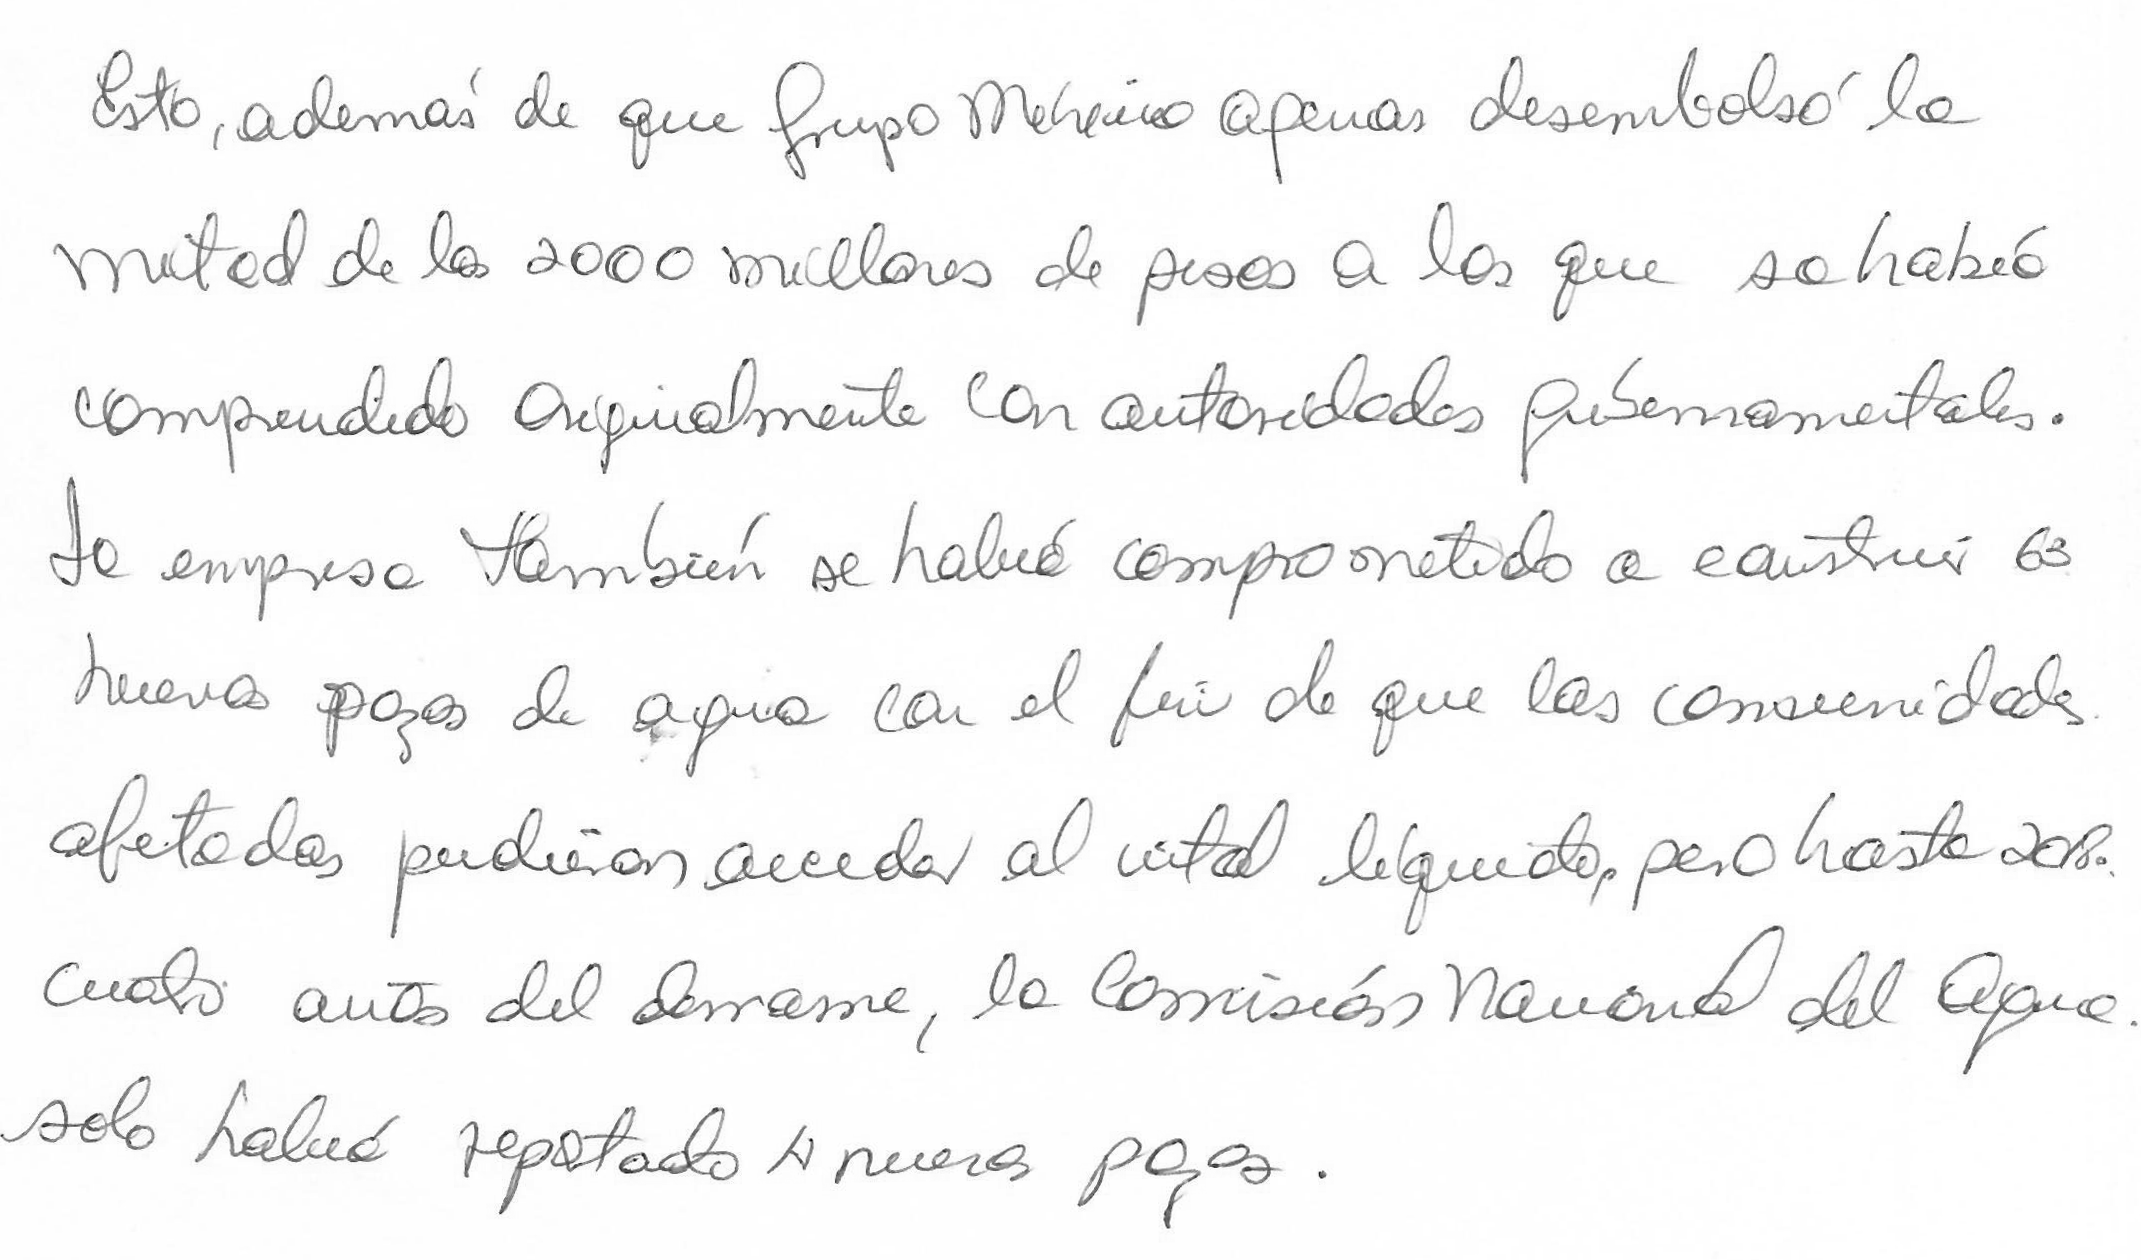 Esto, además de que Grupo México apenas desembolsó la
mitad de los 2000 millones de pesos a los que se había
comprendido originalmente con autoridades gubernamentales.
La empresa también se había comprometido a construir 63
nuevos pozos de agua con el fin de que las comunidades
afetadas pudieran acceder al vital líquido, pero hasta 2018.
cuatro años del derrame, la Comisión Nacional del Agua.
solo había reportado 4 nuevos pozos.